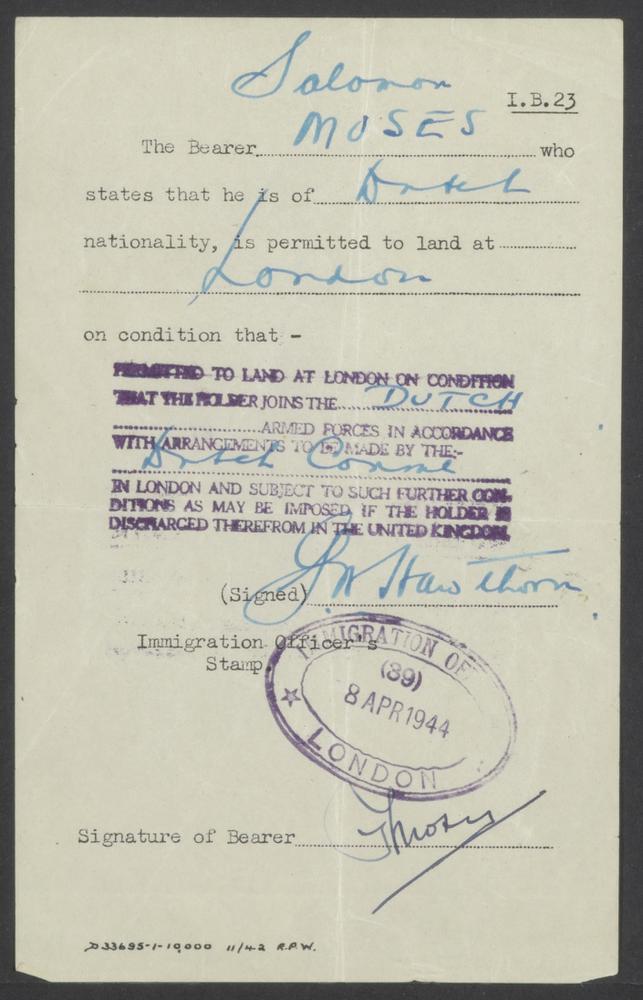 Salomon
I.B.23
The Bearer MOSES who
states that he is of Dutch
nationality, is permitted to land at
London
on condition that -
PERMITTED TO LAND AT LONDON ON CONDITION
THAT THE HOLDER JOINS THE DUTCH
ARMED FORCES IN ACCORDANCE
WITH ARRANGEMENTS TO BE MADE BY THE:-
Dutch
IN LONDON AND SUBJECT TO SUCH FURTHER CON-
DITIONS AS MAY BE IMPOSED IF THE HOLDER IS
DISCHARGED THEREFROM IN THE UNITED KINGDOM.
(Signed) J.W Hawthorn
Immigration Officer's
Stamp
IMMIGRATION OF
(39)
8 APR 1944
LONDON
Signature of Bearer Moses
D33695-1-10,000 11/42 R.P.W.